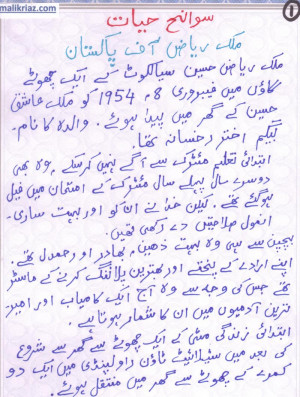 malikriaz.com
1
سوانح حیات
ملک ریاض آف پاکستان
ملک ریاض حسین سیالکوٹ کے ایک چھوٹے
گاؤں میں فیبروری 8، 1954 کو ملک عاشق
حسین کے گھر میں پیدا ہوئے۔ والدہ کا نام۔
بیگیم اختر رخسانہ تھا۔
ابتدائی تعلیم میٹرک سے آگے نہیں کرسکے۔ وہ بھی
دوسرے سال پہلے سال میٹرک کے امتحان میں فیل
ہوگئے تھے۔ لیکن خدا نے ان کو اور بہت ساری۔
انمول صلاحیتیں دے رکھی تھیں۔
بچپن سے ہی وہ بہت ذہین، بھادر اور رحمدل تھے۔
اپنے ارادے کے پختے اور بہترین پلاننگ کرنے کے ماسٹر
تھے جس کی وجہ سے وہ آج ایک کامیاب اور امیر۔
ترین آدمیوں میں ان کا شمار ہوتا ہے۔
ابتدائی زندگی مٹی کے ایک چھوٹے سے گھر سے شروع
کی بعد میں سیٹلائیٹ ٹاؤن راولپنڈی میں ایک دو
کمرے کے چھوٹے سے گھر میں منتقل ہوئے۔